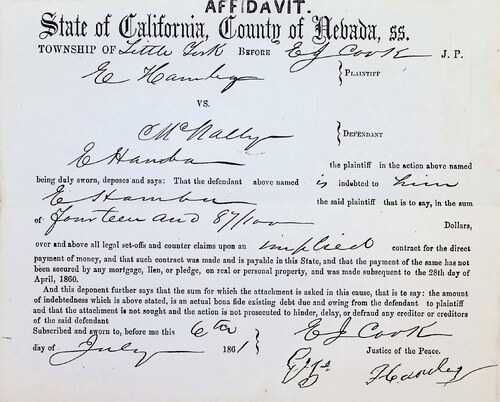 AFFIDAVIT.
State of California, County of Nevada, ss.
TOWNSHIP OF Little York BEFORE E J Cook J. P.
E Hamley } PLAINTIFF
VS.
McNally } DEFENDANT
E the plaintiff in the action above named
being duly sworn, deposes and says: That the defendant above named is indebted to him
E the said plaintiff that is to say, in the sum
of Fourteen and 87/100 Dollars,
over and above all legal set-offs and counter claims upon an implied contract for the direct
payment of money, and that such contract was made and is payable in this State, and that the payment of the same has not
been secured by any mortgage, lien, or pledge, on real or personal property, and was made subsequent to the 28th day of
April, 1860.
And this deponent further says that the sum for which the attachment is asked in this cause, that is to say: the amount
of indebtedness which is above stated, is an actual bona fide existing debt due and owing from the defendant to plaintiff
and that the attachment is not sought and the action is not prosecuted to hinder, delay, or defraud any creditor or creditors
of the said defendant
Subscribed and sworn to, before me this 6th
day of July 1861
E J Cook
Justice of the Peace.
Hamley